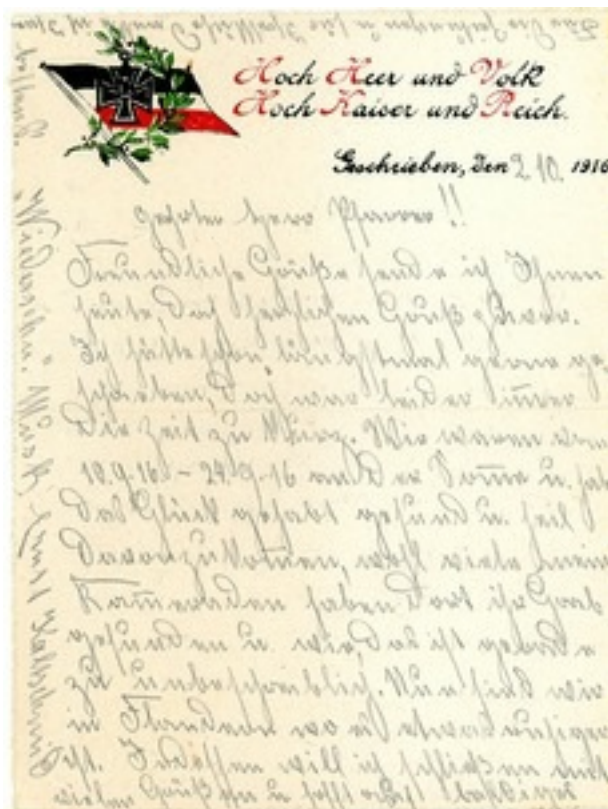 Hoch Heer und Volk
Hoch Kaiser und Reich.
Geschrieben, den 2.10. 1916
Geehrter Herr Pfarrer!!
Freundliche Grüße sende ich Ihnen
heute, doch herzlichen Gruß zuvor.
Ich hätte schon längstmal gerne ge-
schrieben, doch war leider immer
die Zeit zu kurz. Wir waren vom
19.9.16 - 24.9.16 an der Somme u. hab
das Glück gehabt gesund u. heil
davonzukommen, wohl viele meine
Kameraden haben dort ihr Grab
gefunden u. wie, das ist gerade
zu unbeschreiblich. Nun sind wir
in Flandern wo es etwas ruhiger
ist. Indessen will ich schließen mit
vielen Grüßen u. hofft
Wiedersehn. Musk. Ernst